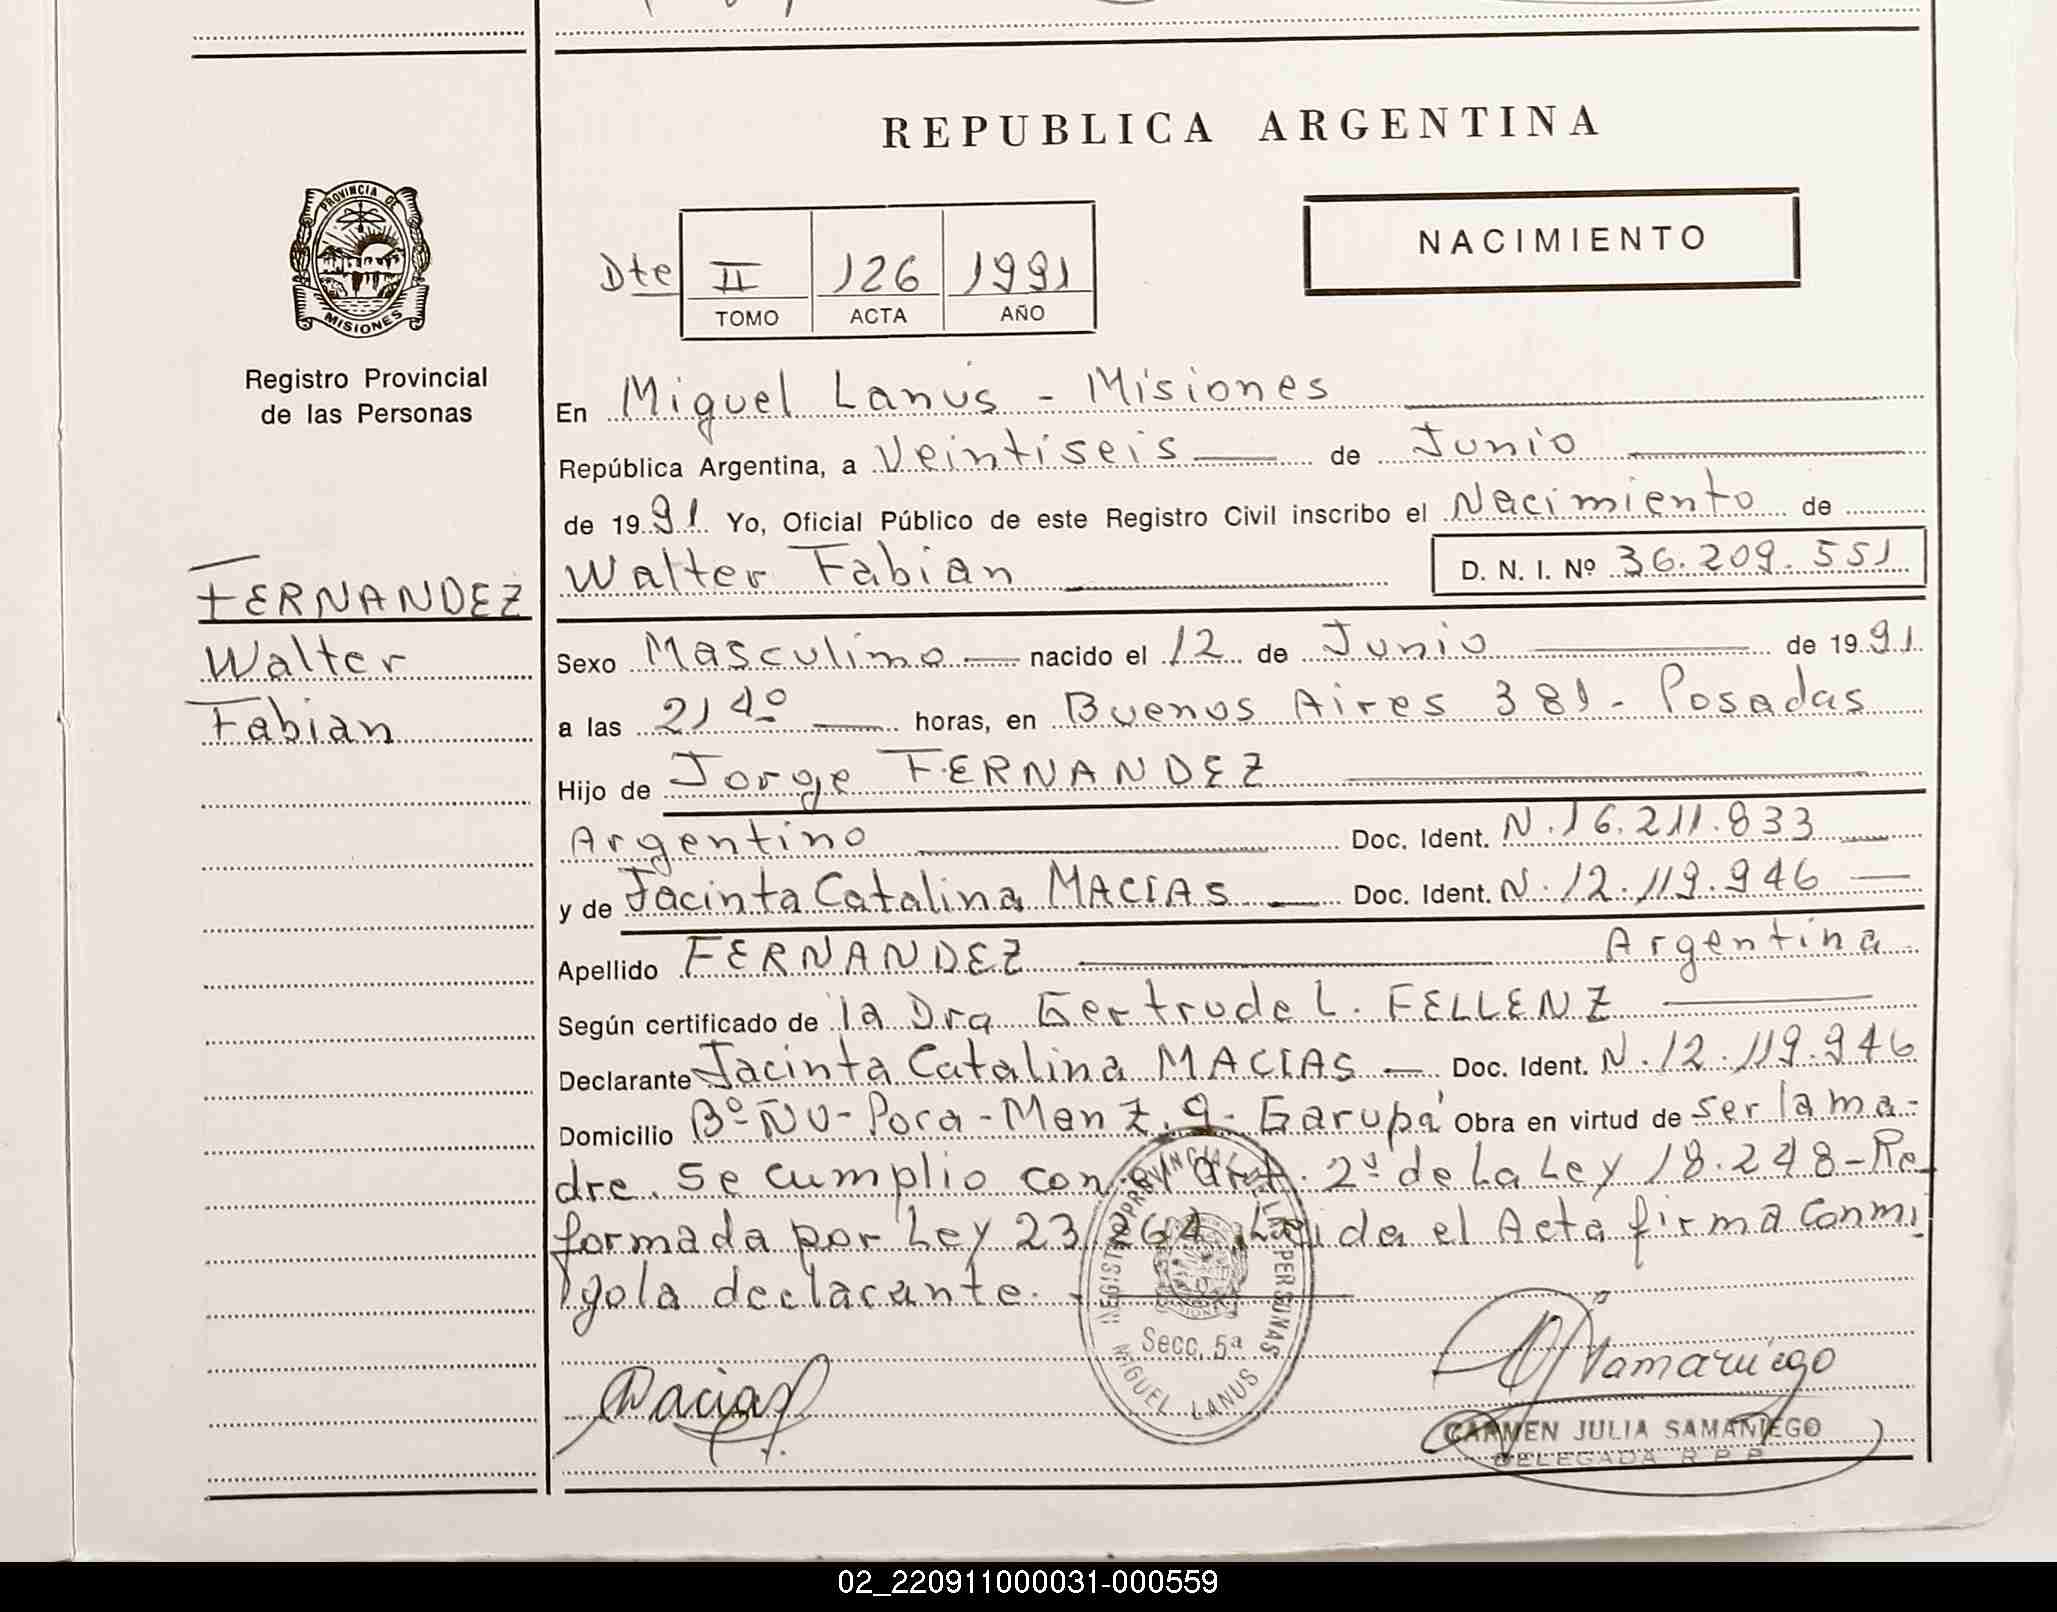 REPUBLICA ARGENTINA
PROVINCIA DE
MISIONES
Registro Provincial
de las Personas
Dte II 126 1991
TOMO ACTA AÑO
NACIMIENTO
FERNANDEZ
Walter
Fabian
En Miguel Lanús - Misiones
República Argentina, a Veintiseis de Junio
de 1991 Yo, Oficial Público de este Registro Civil inscribo el Nacimiento de
Walter Fabian D. N. I. Nº 36.209.551
Sexo Masculino nacido el 12 de Junio de 1991
a las 21 40 horas, en Buenos Aires 381 - Posadas
Hijo de Jorge FERNANDEZ
Argentino Doc. Ident. N.16.211.833
y de Jacinta Catalina MACIAS Doc. Ident. N.12.119.946
Apellido FERNANDEZ Argentina
Según certificado de la Dra Gertrude L. FELLENZ
Declarante Jacinta Catalina MACIAS Doc. Ident. N.12.119.946
Domicilio Bº ÑU-Pora-Manz. 9- Garupá Obra en virtud de ser la ma-
dre. Se cumplio con el art. 2º de La Ley 18.248-Re
formada por Ley 23264. Leida el Acta firma conmi
go la declarante.
REGISTRO PROVINCIAL DE LAS PERSONAS
Secc. 5ª
MIGUEL LANUS
Macias
Samaniego
CARMEN JULIA SAMANIEGO
DELEGADA R.P.P.
02_220911000031-000559